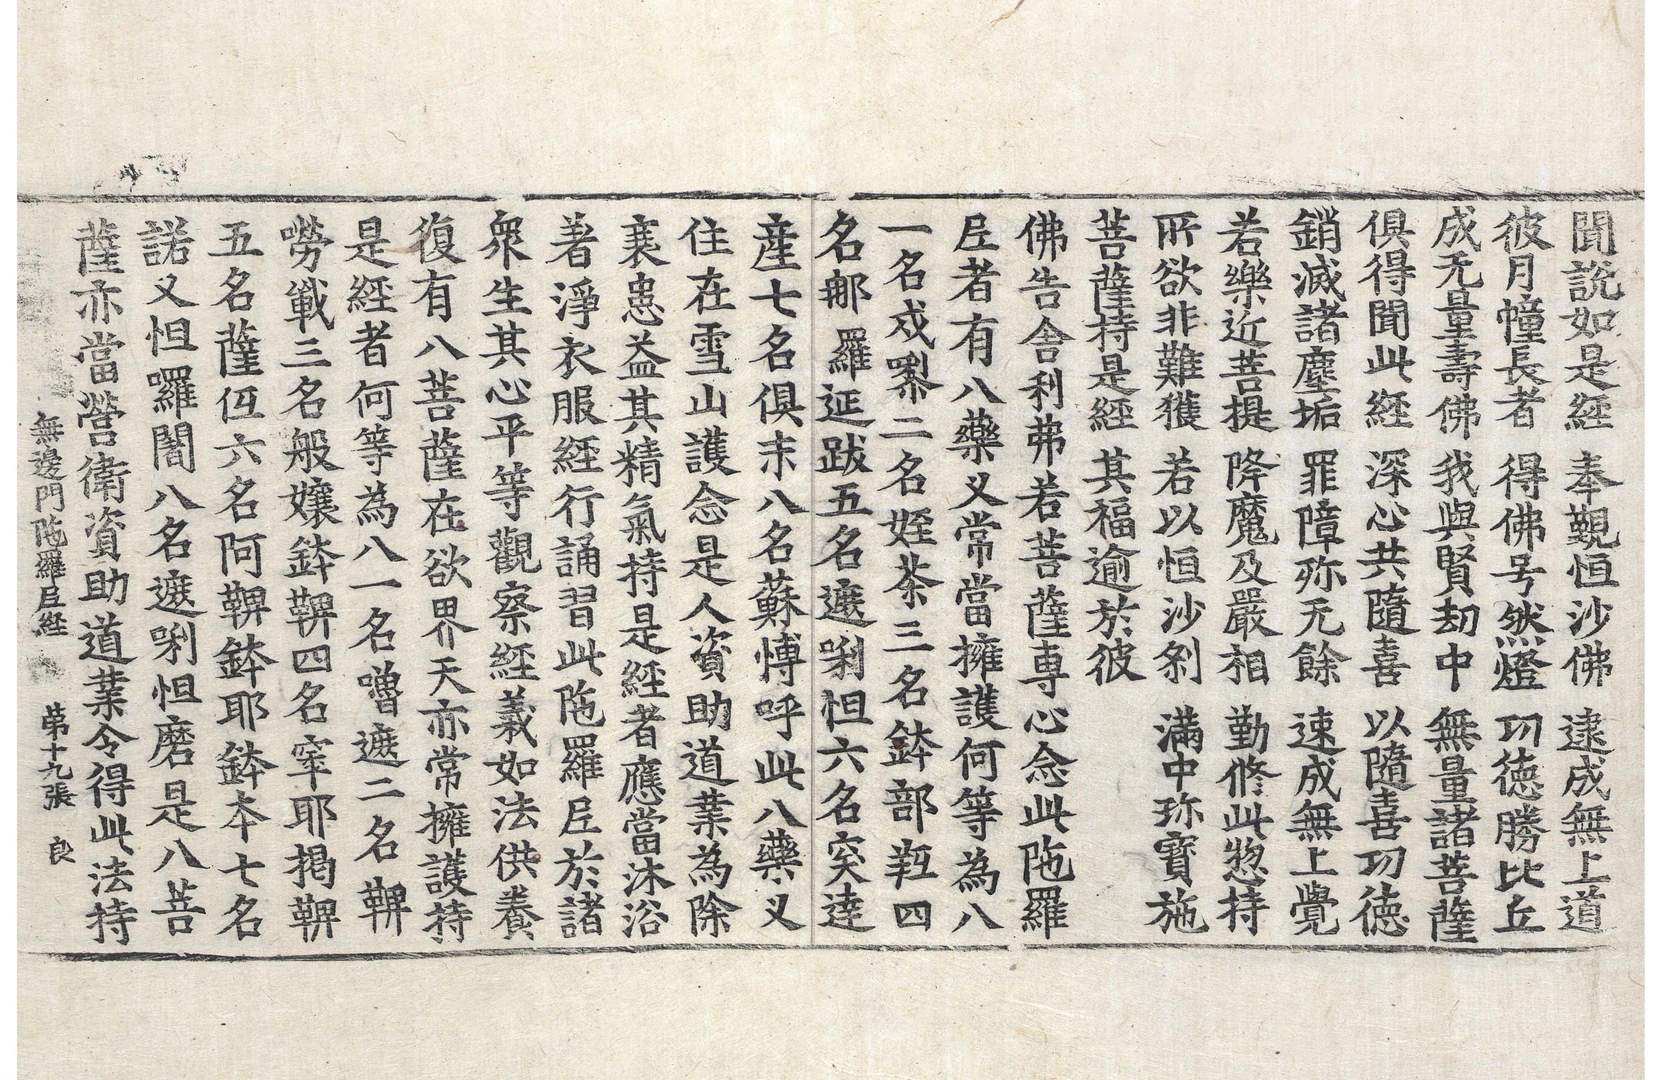 聞說如是經　奉覲恒沙佛　逮成無上道
彼月幢長者　得佛号然燈　功德勝比丘
成无量壽佛　我與賢劫中　無量諸菩薩
俱得聞此經　深心共隨喜　以隨喜功德
銷滅諸塵垢　罪障弥无餘　速成無上覺
若樂近菩提　降魔及嚴相　勤修此惣持
所欲非難獲　若以恒沙剎　滿中珎寶施
菩薩持是經　其福逾於彼
佛告舍利弗若菩薩專心念此陁羅
尼者有八藥叉常當擁護何等為八
一名戍㗚二名姪茶三名鉢部㼛四
名那羅延跋五名遮唎怛六名突達
産七名俱末八名蘇愽呼此八藥叉
住在雪山護念是人資助道業為除
襄患益其精氣持是經者應當沐浴
著淨衣服經行誦習此陁羅尼於諸
衆生其心平等觀察經義如法供養
復有八菩薩在欲界天亦常擁護持
是經者何等為八一名嚕遮二名鞞
嘮韱三名般孃鉢鞞四名窣耶揭鞞
五名薩伍六名阿鞞鉢耶鉢本七名
諾叉怛囉闍八名遮唎怛磨是八菩
薩亦當營衛資助道業令得此法持
無邊門陁羅尼經　第十九張　良